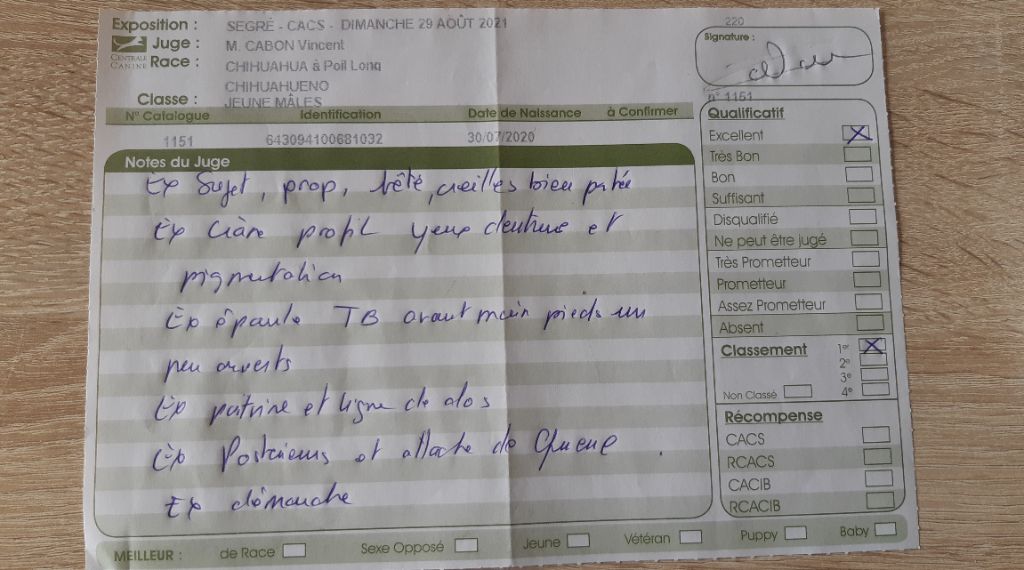 Exposition : SEGRÉ - CACS - DIMANCHE 29 AOÛT 2021
CENTRALE CANINE
Juge : M. CABON Vincent
Race : CHIHUAHUA à Poil Long
CHIHUAHUENO
Classe : JEUNE MÂLES
220
Signature :
n° 1151
N° Catalogue Identification Date de Naissance à Confirmer
1151 643094100681032 30/07/2020
Notes du Juge
Ex Sujet, prop, tête, oreilles bien
Ex Crâne profil yeux denture et
pigmentation
Ex épaule TB avant main pieds un
peu ouverts
Ex poitrine et ligne de dos
Ex Postérieurs et attache de Queue.
Ex démarche
Qualificatif
Excellent X
Très Bon
Bon
Suffisant
Disqualifié
Ne peut être jugé
Très Prometteur
Prometteur
Assez Prometteur
Absent
Classement 1er X
2e
3e
Non Classé 4e
Récompense
CACS
RCACS
CACIB
RCACIB
MEILLEUR : de Race Sexe Opposé Jeune Vétéran Puppy Baby